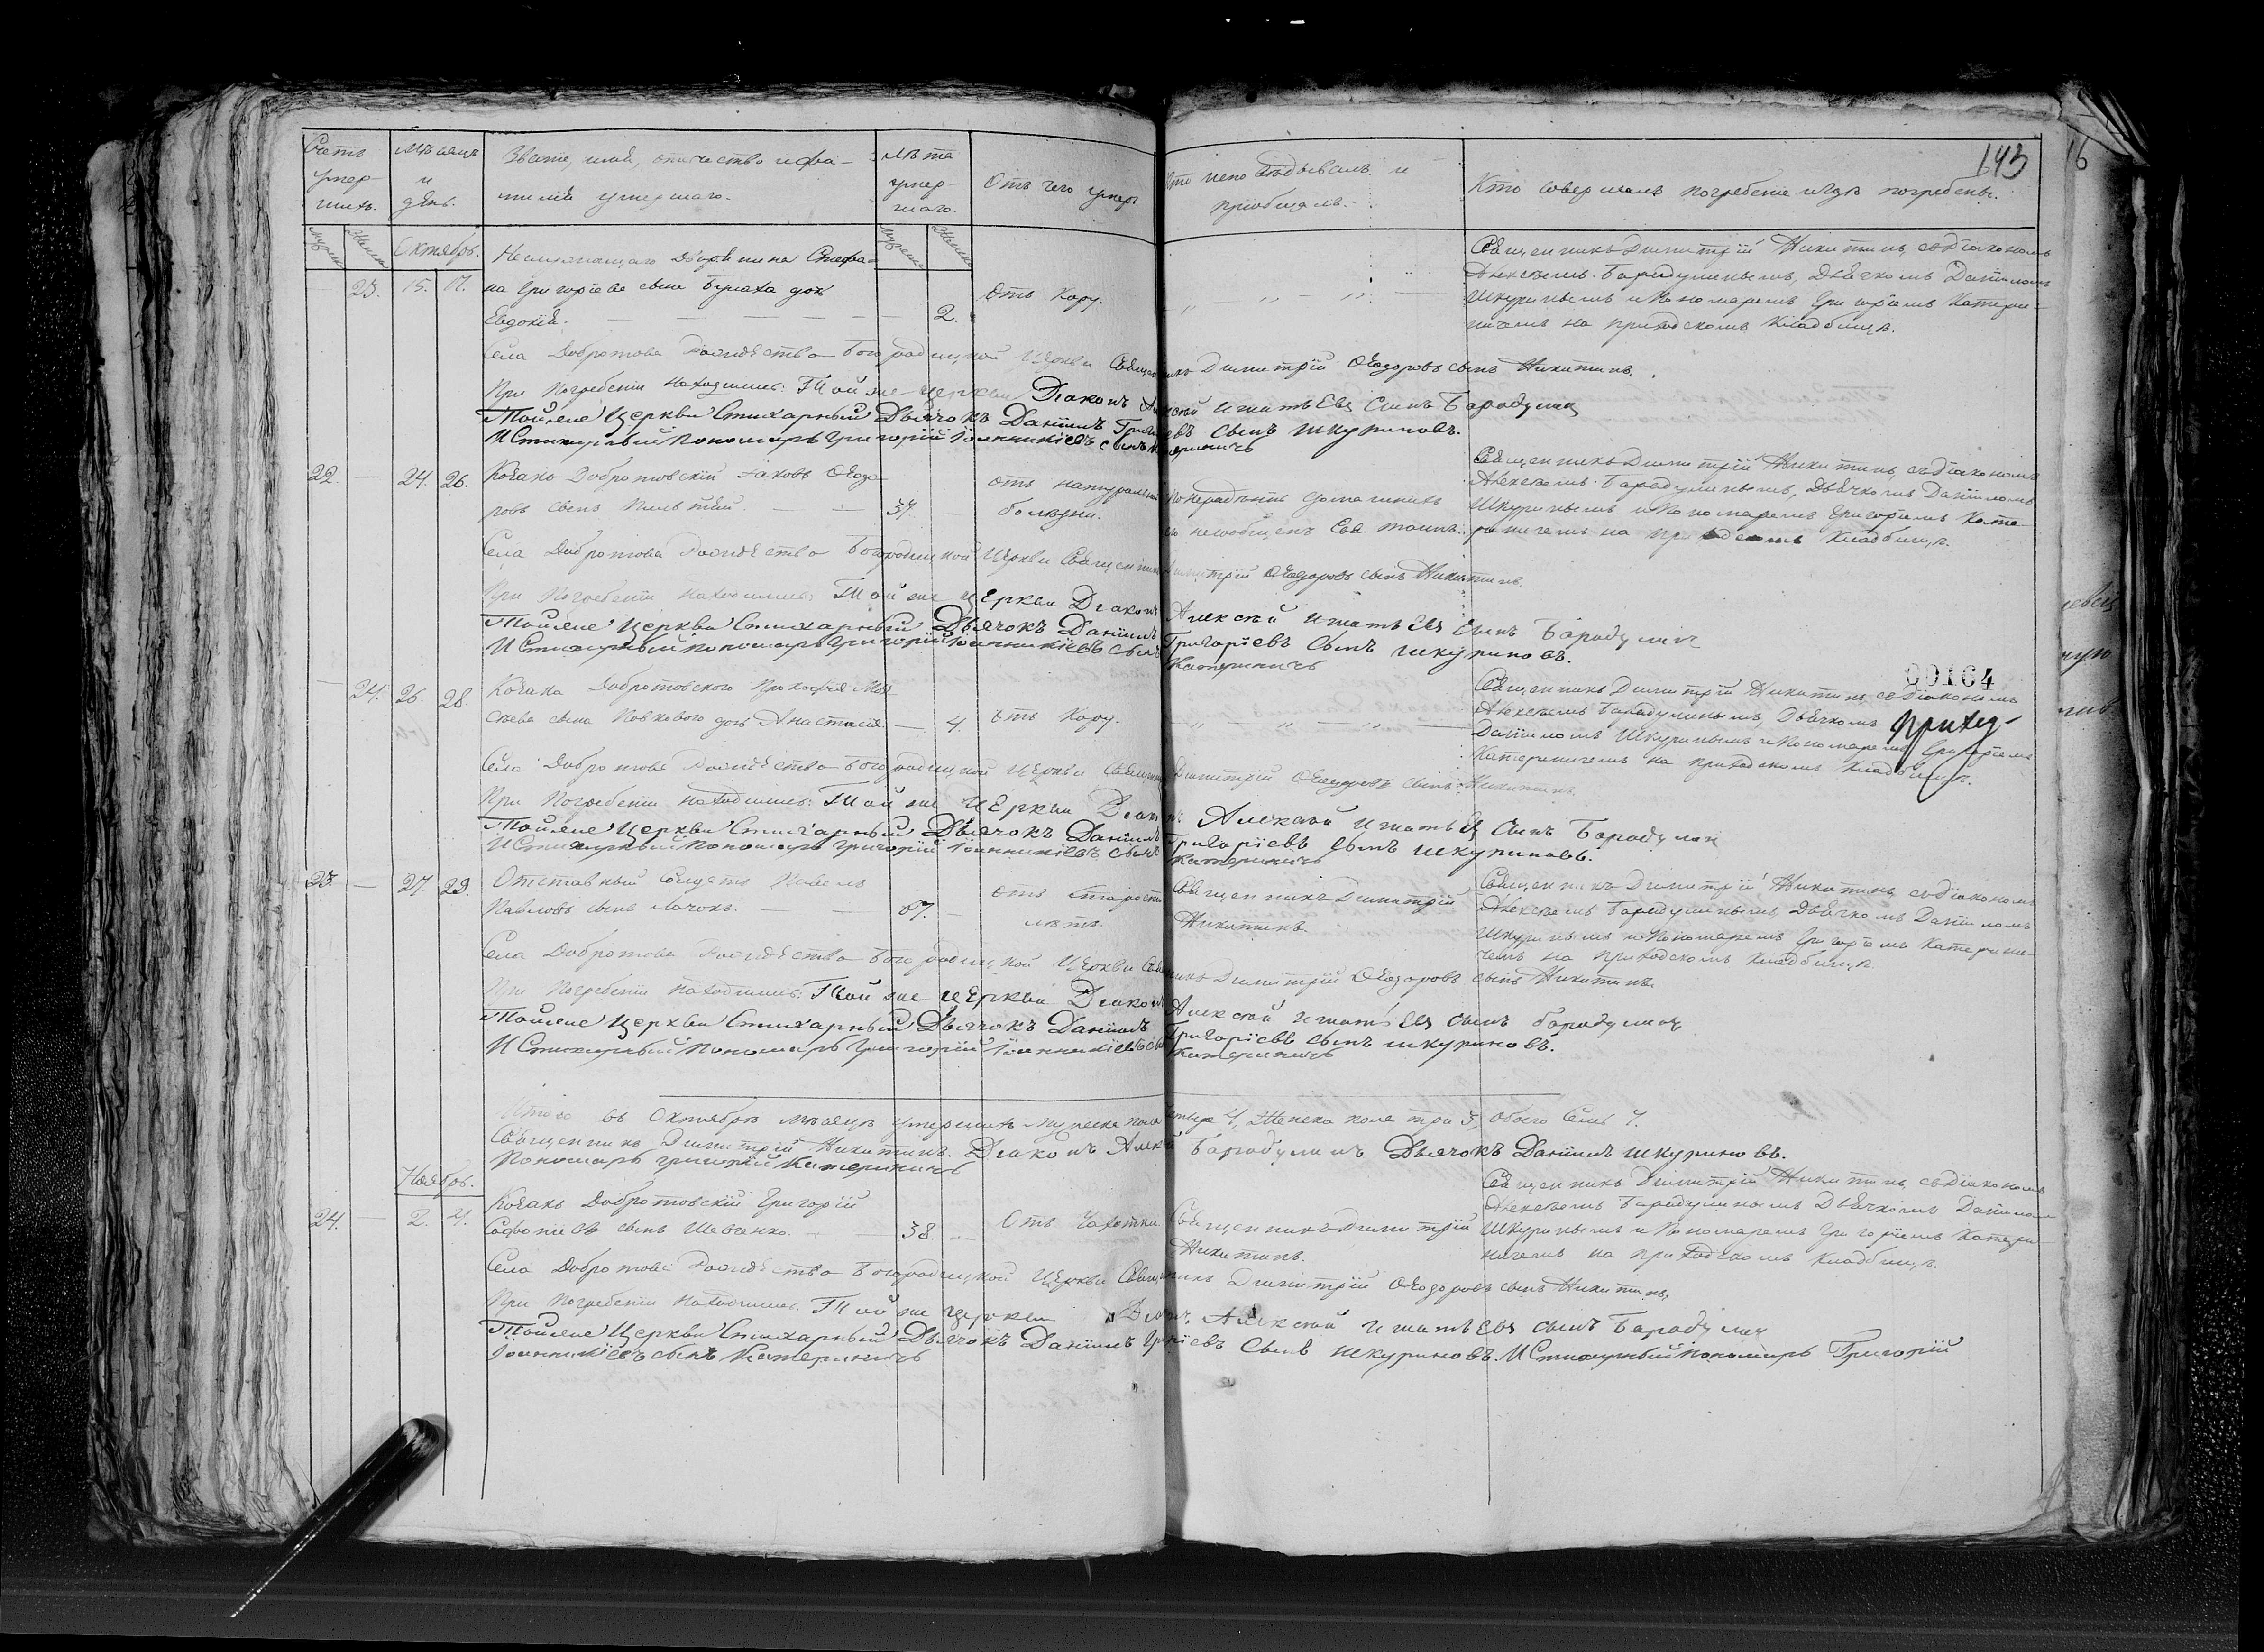 143
16
Счетъ умер-шихъ.
Мѣсяцъ и день.
Званіе, имя, отечество и фа-
милія умершаго.
Лѣта умер-шаго.
Отъ чего умеръ
Кто исповѣдывалъ и
пріобщалъ.
Кто совершалъ погребеніе и гдѣ погребены.
Октябрь.
23. 15. 17.
на Григоріева сына дочь
Евдокія. 2.
Отъ Кору.
Священникъ Димитрій Никитинъ, съ діакономъ
Алексѣемъ Барадулинымъ, Дьячкомъ Даніиломъ
Шкуринымъ и Пономаремъ Григоріемъ Катери-
ничемъ на приходскомъ кладбищѣ.
Села Добротова Рождество Богородицкой Церкви Священникъ Димитрій Ѳеодоровъ сынъ Никитинъ.
При Погребеніи находились: Той же церкви Діаконъ Алексѣй Игнатьевъ Сынъ Барадулин
Той же Церкви Стихарный Дьячокъ Даніилъ Григорьевъ Сынъ Шкуриновъ.
И Стихарный Пономарь Григорій Іоанникіевъ сынъ Катериничъ
22. 24. 26. Козакъ Добротовскій Іаковъ Ѳеодо-
ровъ сынъ 37
отъ натуральной
болѣзни.
По нерадѣнію домашнихъ
Священникъ Димитрій Никитинъ, съ діакономъ
Алексѣемъ Барадулинымъ, Дьячкомъ Даніиломъ
Шкуринымъ и Пономаремъ Григоріемъ Кате-
риничемъ на приходскомъ кладбищѣ.
Села Добротова Рождество Богородицкой Церкви Священникъ Димитрій Ѳеодоровъ сынъ Никитинъ.
При Погребеніи находились: Той же церкви Діаконъ Алексѣй Игнатьевъ Сынъ Барадулин
Той же Церкви Стихарный Дьячокъ Даніилъ Григоріевъ Сынъ Шкуриновъ.
И Стихарный Пономарь Григорій Іоанникіевъ сынъ Катериничъ
00164
24. 26. 28. Козака Добротовского Прокофія Мои-
сѣева сына дочь Анастасія 4.
отъ Кору.
Священникъ Димитрій Никитинъ, съ діакономъ
Алексѣемъ Барадулинымъ, Дьячкомъ
Даніиломъ Шкуринымъ и Пономаремъ Григоріемъ
Катериничемъ на приходскомъ кладбищѣ.
Села Добротова Рождество Богородицкой Церкви Священникъ Димитрій Ѳеодоровъ сынъ Никитинъ.
При Погребеніи находились: Той же Церкви Діаконъ Алексѣй Игнатьевъ Сынъ Барадулин
Той же Церкви Стихарный Дьячокъ Даніилъ Григоріевъ Сынъ Шкуриновъ.
И Стихарный Пономарь Григорій Іоанникіевъ сынъ Катериничъ
23. 27. 29. Отставный Павелъ
Павловъ сынъ
отъ старости
лѣтъ.
Священникъ Димитрій
Никитинъ.
Священникъ Димитрій Никитинъ, съ діакономъ
Алексѣемъ Барадулинымъ, Дьячкомъ Даніиломъ
Шкуринымъ и Пономаремъ Григоріемъ Катерини-
чемъ на приходскомъ кладбищѣ.
Села Добротова Рождество Богородицкой Церкви Священникъ Димитрій Ѳеодоровъ сынъ Никитинъ.
При Погребеніи находились: Той же церкви Діаконъ Алексѣй Игнатьевъ сынъ Барадулин
Той же Церкви Стихарный Дьячокъ Даніилъ Григоріевъ Сынъ Шкуриновъ.
И Стихарный Пономарь Григорій Іоанникіевъ сынъ Катериничъ
Итого въ Октябрѣ мѣсяцѣ умершихъ мужеска пола четыре 4, Женска пола три 3, обоего Семь 7.
Священникъ Димитрій Никитинъ. Діаконъ Алексѣй Барадулинъ Дьячокъ Даніилъ Шкуриновъ.
Пономарь Григорій Катериничъ
Ноябрь.
24. 2. 4. Козакъ Добротовскій Григорій
сынъ Шевченко. 38.
Отъ Чахотки
Священникъ Димитрій
Никитинъ.
Священникъ Димитрій Никитинъ, съ діакономъ
Алексѣемъ Барадулинымъ Дьячкомъ Даніиломъ
Шкуринымъ и Пономаремъ Григоріемъ Катери-
ничемъ на приходскомъ кладбищѣ.
Села Добротова Рождество Богородицкой Церкви Священникъ Димитрій Ѳеодоровъ сынъ Никитинъ.
При Погребеніи находились: Той же церкви Діаконъ Алексѣй Игнатьевъ сынъ Барадулин
Той же Церкви Стихарный Дьячокъ Даніилъ Григоріевъ Сынъ Шкуриновъ. И Стихарный Пономарь Григорій
Іоанникіевъ сынъ Катериничъ